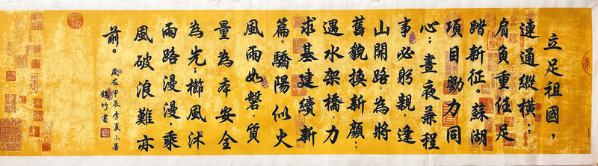 立足祖國，
連通縱橫；
肩負重任足
踏新征。蘇湖
項目勠力同
心；晝夜兼程
事必躬親。逢
山開路，為將
舊貌換新顏；
遇水架橋，力
求基建續新
篇。驕陽似火
風雨如磐，質
量為本安全
為先；櫛風沐
雨路漫漫乘
風破浪難亦
前。
歲次甲辰季夏小暑